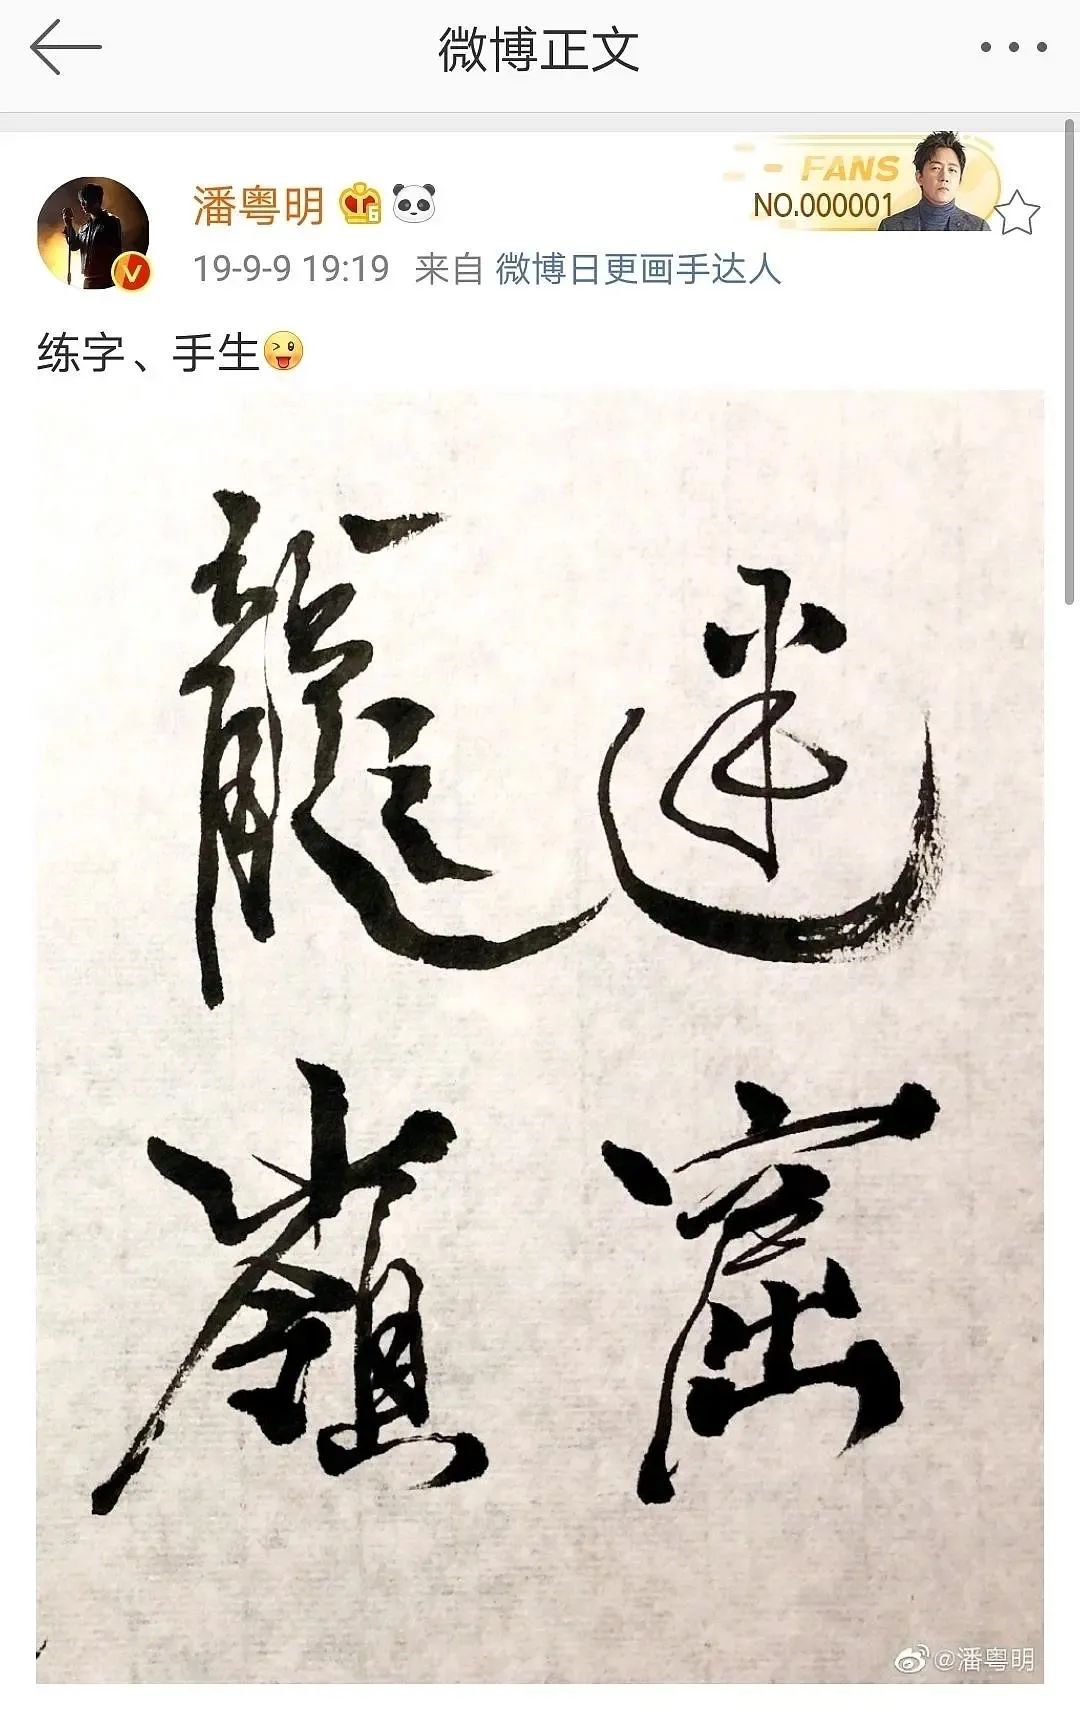 微博正文
FANS
NO.000001
潘粤明
6
19-9-9 19:19 来自 微博日更画手达人
练字、手生
迷窟
龍嶺
@潘粤明